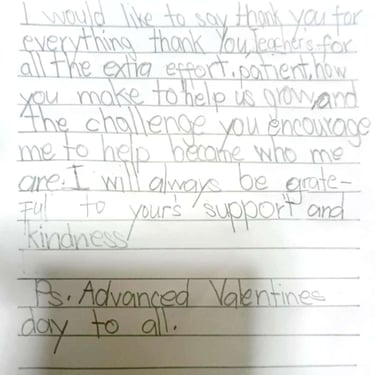 I would like to say thank you for
everything thank You, teachers for
all the extra effort, patient, how
you make to help us grow, and
the challenge you encourage
me to help become who me
are. I will always be grate-
Ful to your's support and
kindness
Ps. Advanced Valentines
day to all.